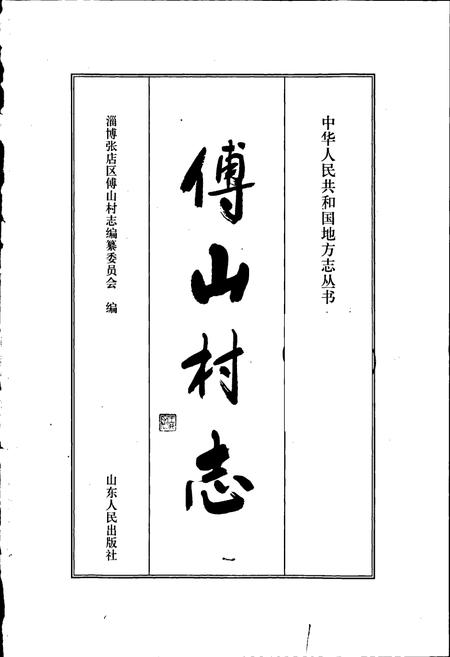 中华人民共和国地方志丛书
傅山村志
淄博张店区傅山村志编纂委员会 编
山东人民出版社